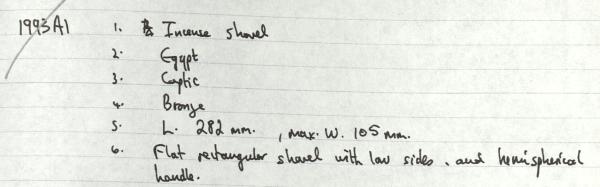 1993A1 1. Incense shovel
2. Egypt
3. Coptic
4. Bronze
5. L. 282 mm. , max. W. 105 mm.
6. Flat rectangular shovel with low sides, and hemispherical
handle.